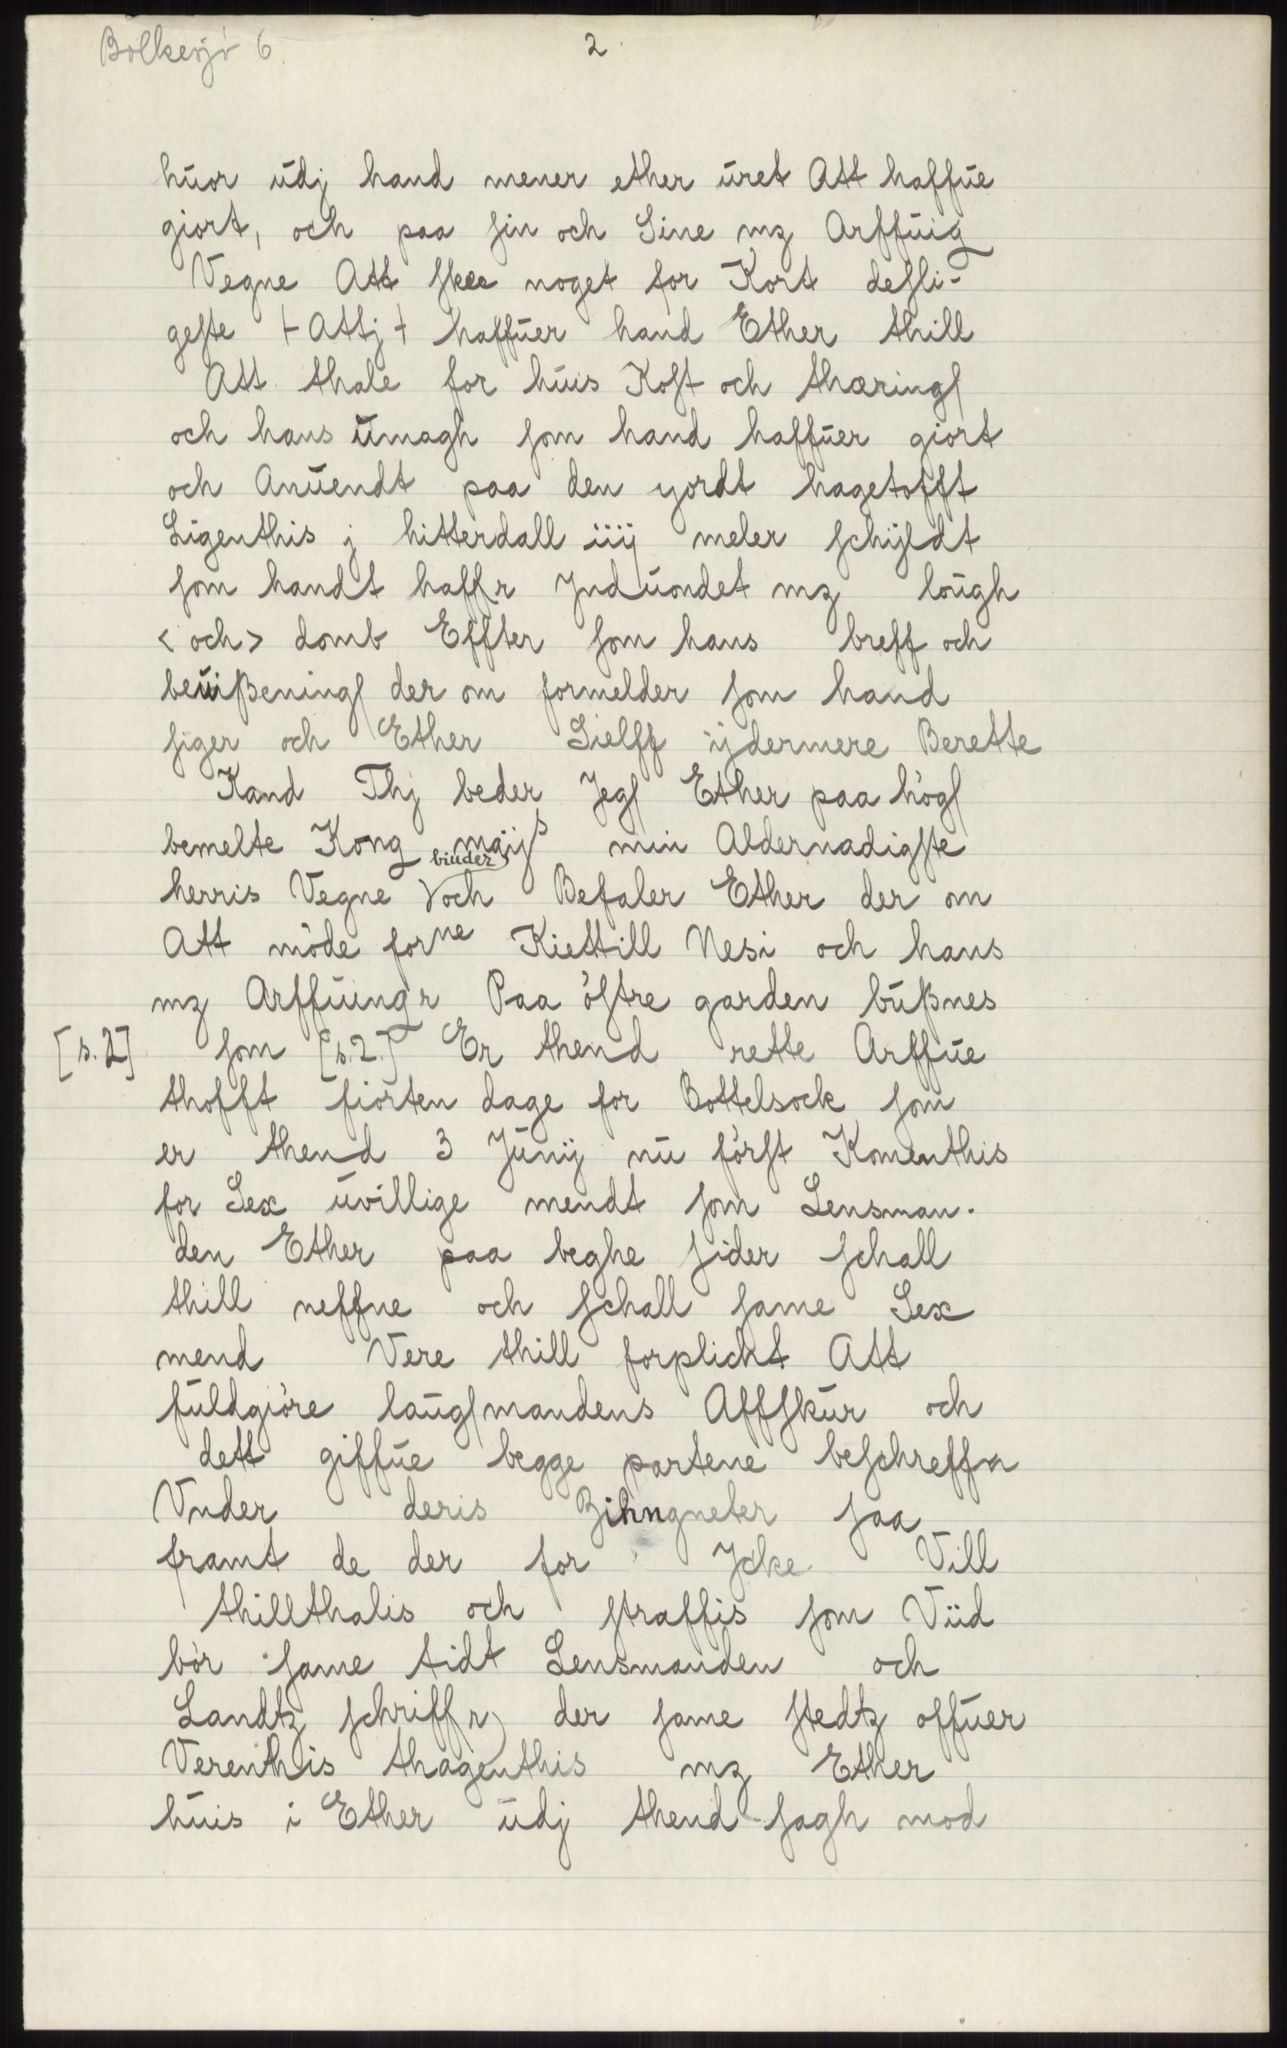 Bolkesjø 6.
2.
huor udj hand mener ether uret Att haffue
giort, och paa ſin och Sine mz Arffuig
Vegne Att ſkee noget for Kort deſli-
geſte ⊢ Attj ⊣ haffuer hand Ether thill
Att thale for huis Koſt och thæringſ
och hans umagh ſom hand haffuer giort
och Anuendt paa den yordt hagetofft
Ligenthis j hitterdall iiij meler ſchÿldt
ſom handt haffr Jnduondet mz lough
< och > domb Effter ſom hans breff och
beuißeningſ der om formelder ſom hand
ſiger och Ether Sielff ÿdermere Berette
Kand Thj beder Jegſ Ether paa högſ
bemelte Kong maijs min Aldernadigſte
binder
herris Vegne och Befaler Ether der om
Att möde forne Kiettill Nesi och hans
mz Arffuingr Paa öſtre garden bußnes
[s. 2] ſom [s. 2.] Er thend rette Arffue
thofft fiorten dage for Bottelsock ſom
er thend 3 Junÿ nu förſt Komenthis
for Sex uvillige mendt ſom Lensman-
den Ether paa beghe ſider ſchall
thill neffne och ſchall ſame Sex
mend Vere thill forplickt Att
fuldgjöre laugſmandens Affſkur och
dett giffue begge partene beſchreffn
Vnder deris Zihngneter ſaa
framt de der for Jcke Vill
thillthalis och ſtraffis ſom Viid
bör ſame tidt Lensmanden och
Landtz ſchriffr der ſame ſtedtz offuer
Verenthis thagenthis mz Ether
huis i Ether udj thend ſagh mod